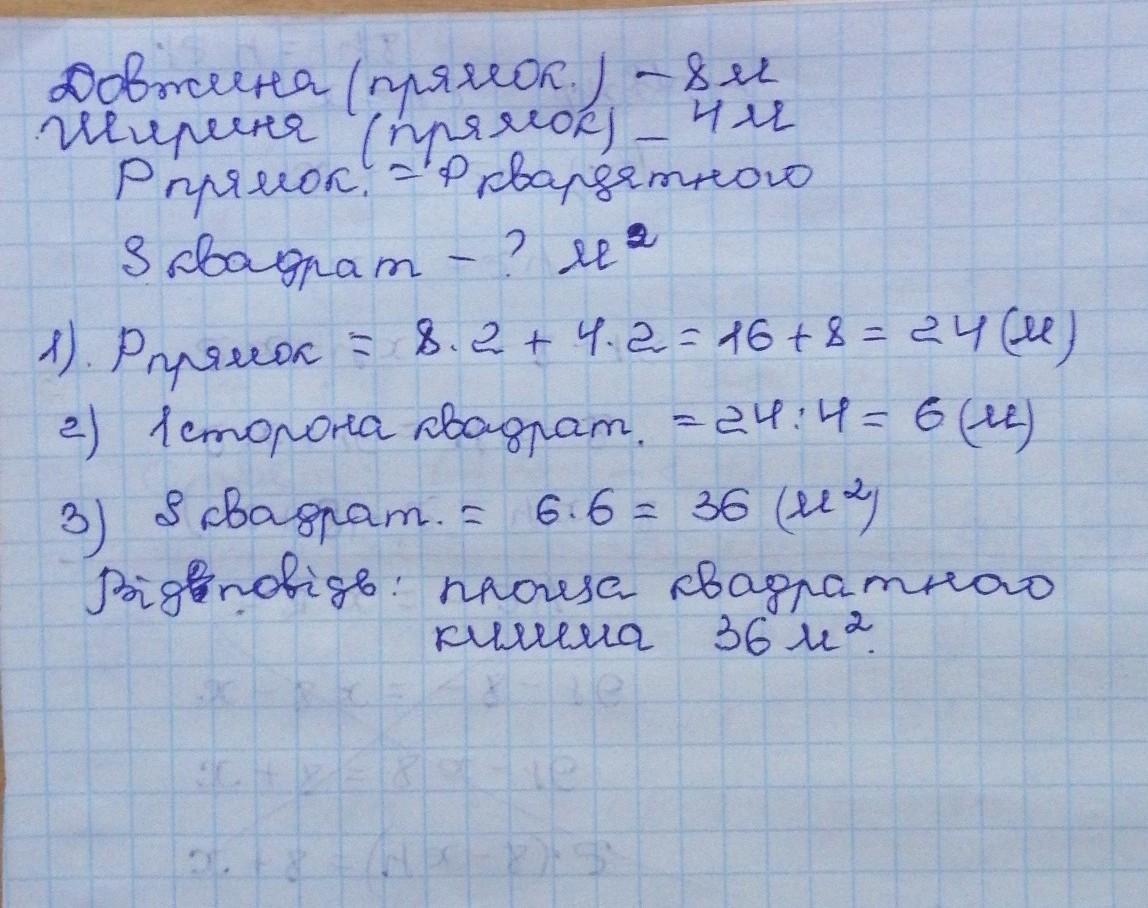 Довжина (прямок.) – 8м
Ширина (прямок) – 4м
P прямок. = P квардатного
S квадрат – ? м²
1). P прямок = 8·2 + 4·2 = 16 + 8 = 24 (м)
2) 1 сторона квадрат. = 24 : 4 = 6 (м)
3) S квадрат. = 6·6 = 36 (м²)
Відповідь: площа квадратного
килима 36 м².